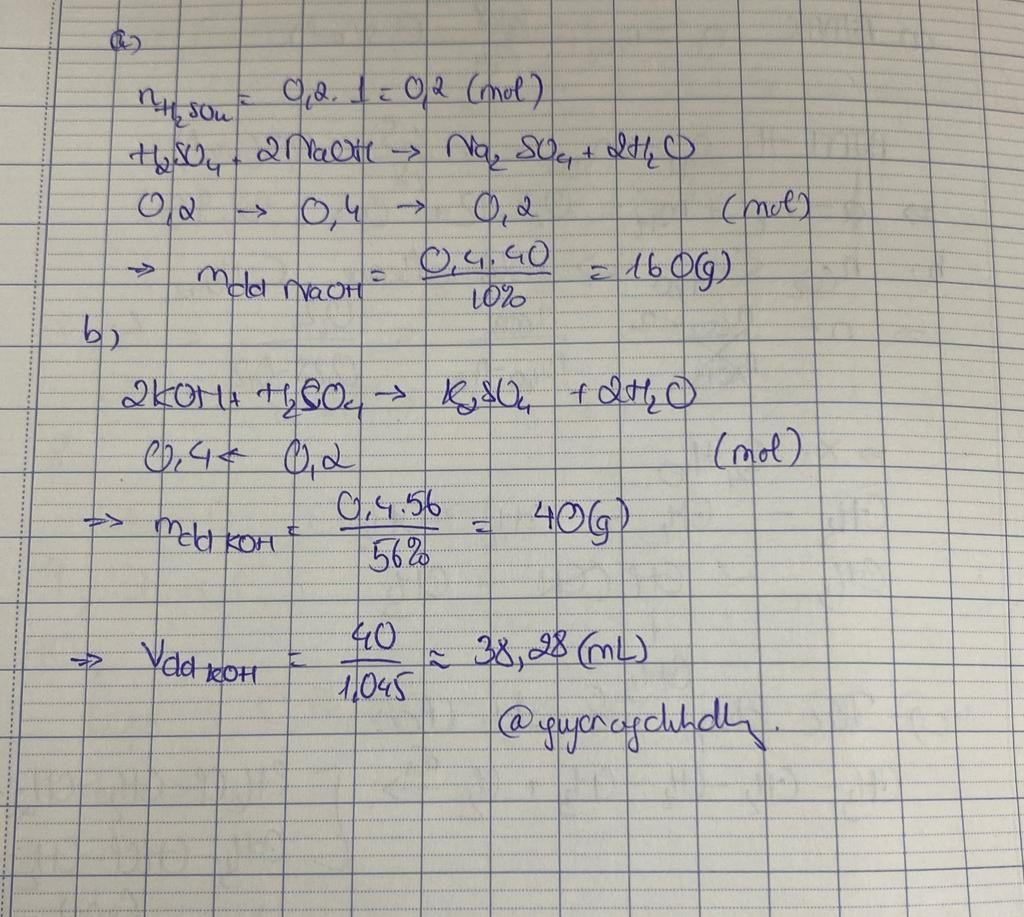 a)
nH₂SO₄ = 0,2 . 1 = 0,2 (mol)
H₂SO₄ + 2NaOH → Na₂SO₄ + 2H₂O
0,2 → 0,4 → 0,2 (mol)
⇒ mdd NaOH = 0,4.40 / 10% = 160(g)
b)
2KOH + H₂SO₄ → K₂SO₄ + 2H₂O
0,4 ← 0,2 (mol)
⇒ mdd KOH = 0,4.56 / 56% = 40(g)
⇒ Vdd KOH = 40 / 1,045 ≈ 38,28 (mL)